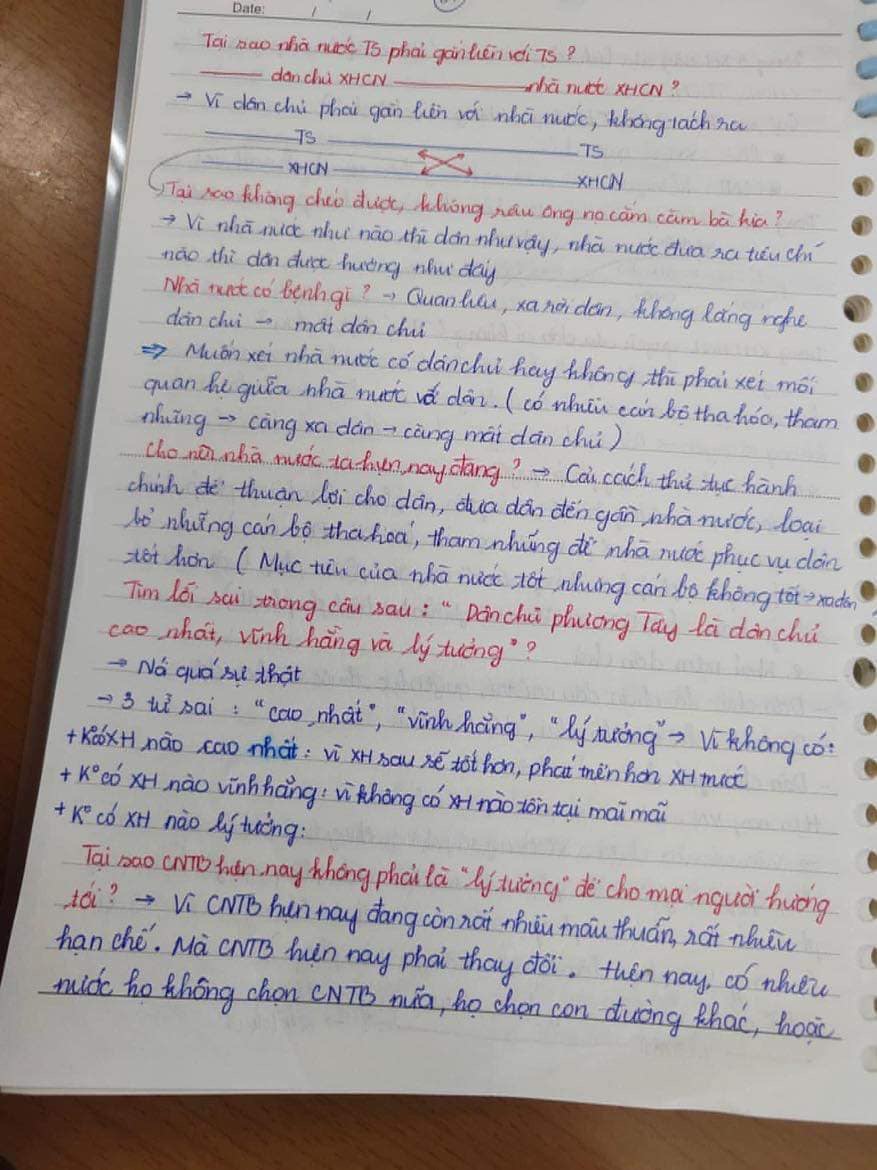 Date: / /
Tại sao nhà nước TS phải gắn liền với TS ?
——— dân chủ XHCN ——— nhà nước XHCN ?
→ Vì dân chủ phải gắn liền với nhà nước, không tách ra
——— TS ——— TS
——— XHCN ——— XHCN
Tại sao không chéo được, không râu ông nọ cắm cằm bà kia ?
→ Vì nhà nước như nào thì dân như vậy, nhà nước đưa ra tiêu chí
nào thì dân được hưởng như đấy
Nhà nước có bệnh gì ? → Quan liêu, xa rời dân, không lắng nghe
dân chủ → mất dân chủ
⇒ Muốn xét nhà nước có dân chủ hay không thì phải xét mối
quan hệ giữa nhà nước và dân. ( có nhiều cán bộ tha hóa, tham
nhũng → càng xa dân → càng mất dân chủ )
Cho nên nhà nước ta hiện nay đang ? → Cải cách thủ tục hành
chính để thuận lợi cho dân, đưa dân đến gần nhà nước, loại
bỏ những cán bộ tha hoá, tham nhũng để nhà nước phục vụ dân
tốt hơn ( Mục tiêu của nhà nước tốt nhưng cán bộ không tốt → xa dân
Tìm lỗi sai trong câu sau : " Dân chủ phương Tây là dân chủ
cao nhất, vĩnh hằng và lý tưởng" ?
→ Nó quá sự thật
→ 3 từ sai : "cao nhất", "vĩnh hằng", "lý tưởng" → Vì không có:
+ K° có XH nào cao nhất : vì XH sau sẽ tốt hơn, phát triển hơn XH trước
+ K° có XH nào vĩnh hằng : vì không có XH nào tồn tại mãi mãi
+ K° có XH nào lý tưởng:
Tại sao CNTB hiện nay không phải là "lý tưởng" để cho mọi người hướng
tới ? → Vì CNTB hiện nay đang còn rất nhiều mâu thuẫn, rất nhiều
hạn chế. Mà CNTB hiện nay phải thay đổi. Hiện nay, có nhiều
nước họ không chọn CNTB nữa, họ chọn con đường khác, hoặc